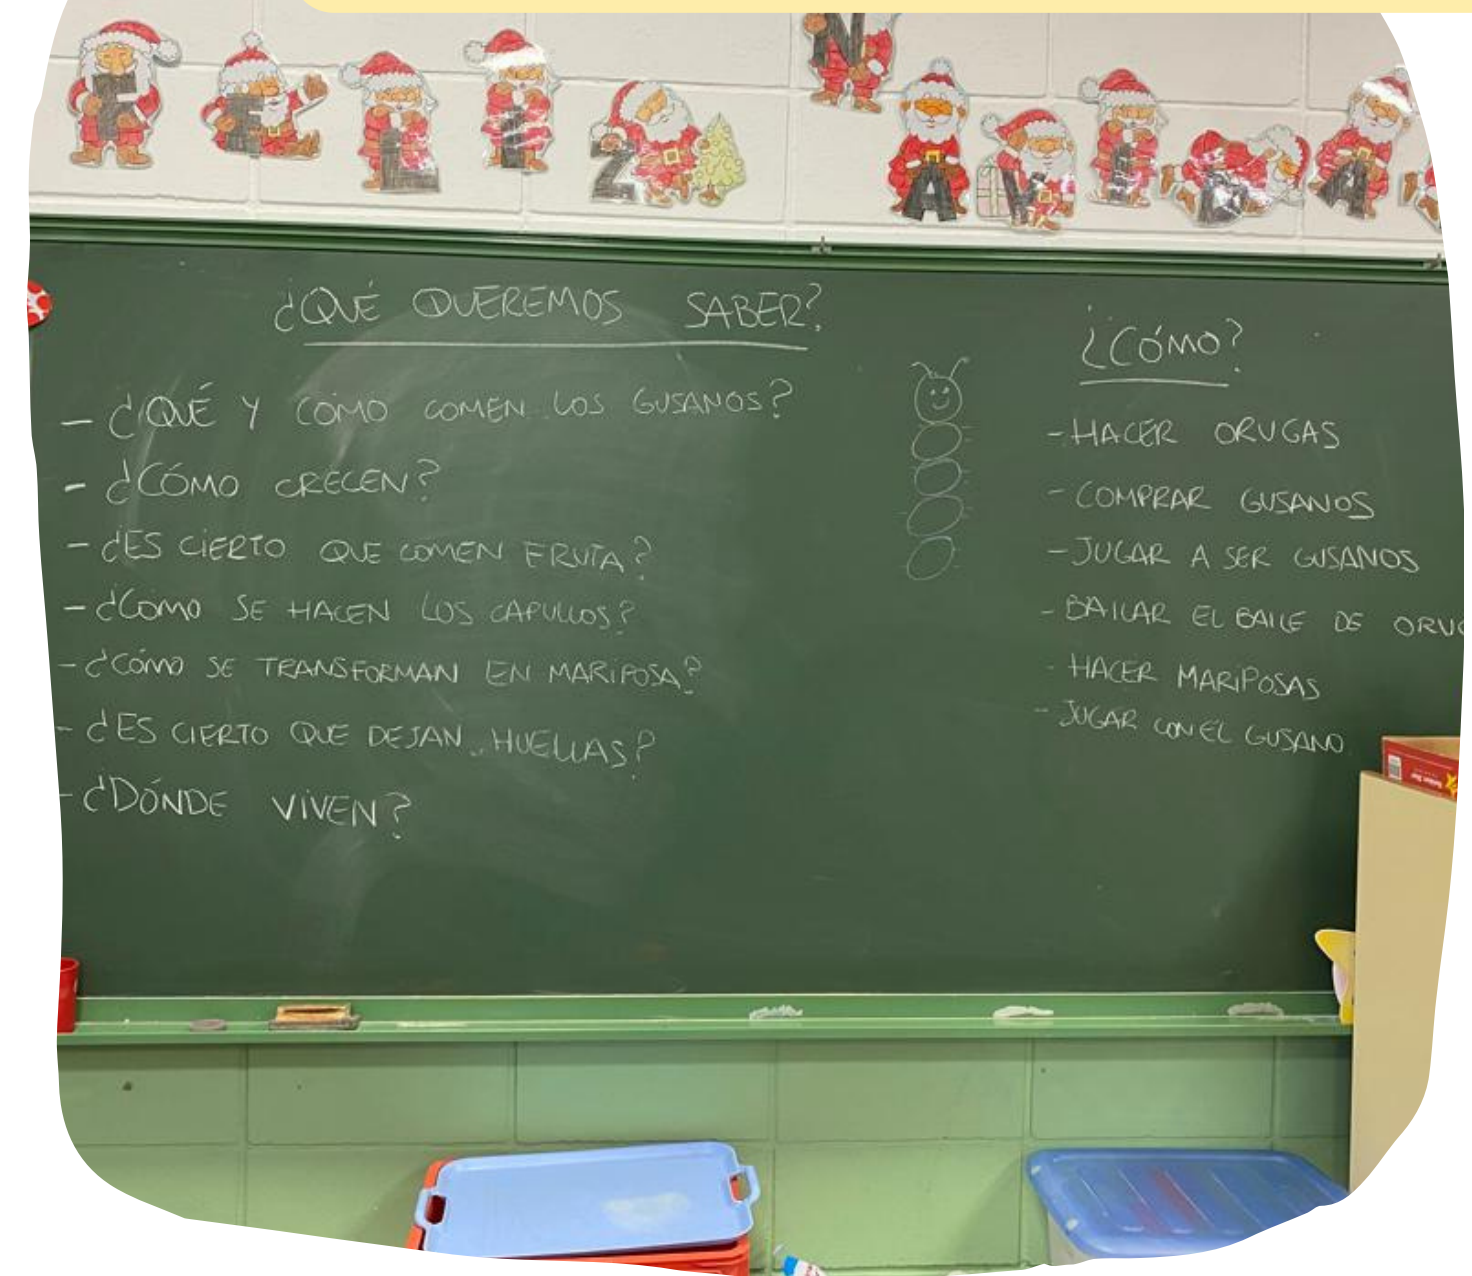 FELIZ NAVIDA
¿QUÉ QUEREMOS SABER?
- ¿QUÉ Y COMO COMEN LOS GUSANOS?
- ¿CÓMO CRECEN?
- ¿ES CIERTO QUE COMEN FRUTA?
- ¿COMO SE HACEN LOS CAPULLOS?
- ¿CÓMO SE TRANSFORMAN EN MARIPOSA?
- ¿ES CIERTO QUE DEJAN HUELLAS?
- ¿DÓNDE VIVEN?
¿CÓMO?
- HACER ORUGAS
- COMPRAR GUSANOS
- JUGAR A SER GUSANOS
- BAILAR EL BAILE DE ORUG
- HACER MARIPOSAS
- JUGAR CON EL GUSANO